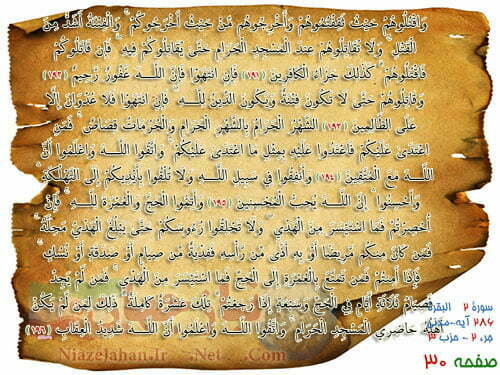 وَاقْتُلُوهُمْ حَيْثُ ثَقِفْتُمُوهُمْ وَأَخْرِجُوهُمْ مِّنْ حَيْثُ أَخْرَجُوكُمْ ۚ وَالْفِتْنَةُ أَشَدُّ مِنَ
الْقَتْلِ ۚ وَلَا تُقَاتِلُوهُمْ عِندَ الْمَسْجِدِ الْحَرَامِ حَتَّىٰ يُقَاتِلُوكُمْ فِيهِ ۖ فَإِن قَاتَلُوكُمْ
فَاقْتُلُوهُمْ ۗ كَذَٰلِكَ جَزَاءُ الْكَافِرِينَ ﴿۱۹۱﴾ فَإِنِ انتَهَوْا فَإِنَّ اللَّـهَ غَفُورٌ رَّحِيمٌ ﴿۱۹۲﴾
وَقَاتِلُوهُمْ حَتَّىٰ لَا تَكُونَ فِتْنَةٌ وَيَكُونَ الدِّينُ لِلَّـهِ ۖ فَإِنِ انتَهَوْا فَلَا عُدْوَانَ إِلَّا
عَلَى الظَّالِمِينَ ﴿۱۹۳﴾ الشَّهْرُ الْحَرَامُ بِالشَّهْرِ الْحَرَامِ وَالْحُرُمَاتُ قِصَاصٌ ۚ فَمَنِ
اعْتَدَىٰ عَلَيْكُمْ فَاعْتَدُوا عَلَيْهِ بِمِثْلِ مَا اعْتَدَىٰ عَلَيْكُمْ ۚ وَاتَّقُوا اللَّـهَ وَاعْلَمُوا أَنَّ
اللَّـهَ مَعَ الْمُتَّقِينَ ﴿۱۹۴﴾ وَأَنفِقُوا فِي سَبِيلِ اللَّـهِ وَلَا تُلْقُوا بِأَيْدِيكُمْ إِلَى التَّهْلُكَةِ ۛ
وَأَحْسِنُوا ۛ إِنَّ اللَّـهَ يُحِبُّ الْمُحْسِنِينَ ﴿۱۹۵﴾ وَأَتِمُّوا الْحَجَّ وَالْعُمْرَةَ لِلَّـهِ ۚ فَإِنْ
أُحْصِرْتُمْ فَمَا اسْتَيْسَرَ مِنَ الْهَدْيِ ۖ وَلَا تَحْلِقُوا رُءُوسَكُمْ حَتَّىٰ يَبْلُغَ الْهَدْيُ مَحِلَّهُ ۚ
فَمَن كَانَ مِنكُم مَّرِيضًا أَوْ بِهِ أَذًى مِّن رَّأْسِهِ فَفِدْيَةٌ مِّن صِيَامٍ أَوْ صَدَقَةٍ أَوْ نُسُكٍ ۚ
فَإِذَا أَمِنتُمْ فَمَن تَمَتَّعَ بِالْعُمْرَةِ إِلَى الْحَجِّ فَمَا اسْتَيْسَرَ مِنَ الْهَدْيِ ۚ فَمَن لَّمْ يَجِدْ
فَصِيَامُ ثَلَاثَةِ أَيَّامٍ فِي الْحَجِّ وَسَبْعَةٍ إِذَا رَجَعْتُمْ ۗ تِلْكَ عَشَرَةٌ كَامِلَةٌ ۗ ذَٰلِكَ لِمَن لَّمْ يَكُنْ
أَهْلُهُ حَاضِرِي الْمَسْجِدِ الْحَرَامِ ۚ وَاتَّقُوا اللَّـهَ وَاعْلَمُوا أَنَّ اللَّـهَ شَدِيدُ الْعِقَابِ ﴿۱۹۶﴾
سورهٔ ۲ البقره
۲۸۶ آیه-مدنی
جزء ۲ - حزب ۳
صفحه ۳۰
NiazeJahan.Ir .Net .Com